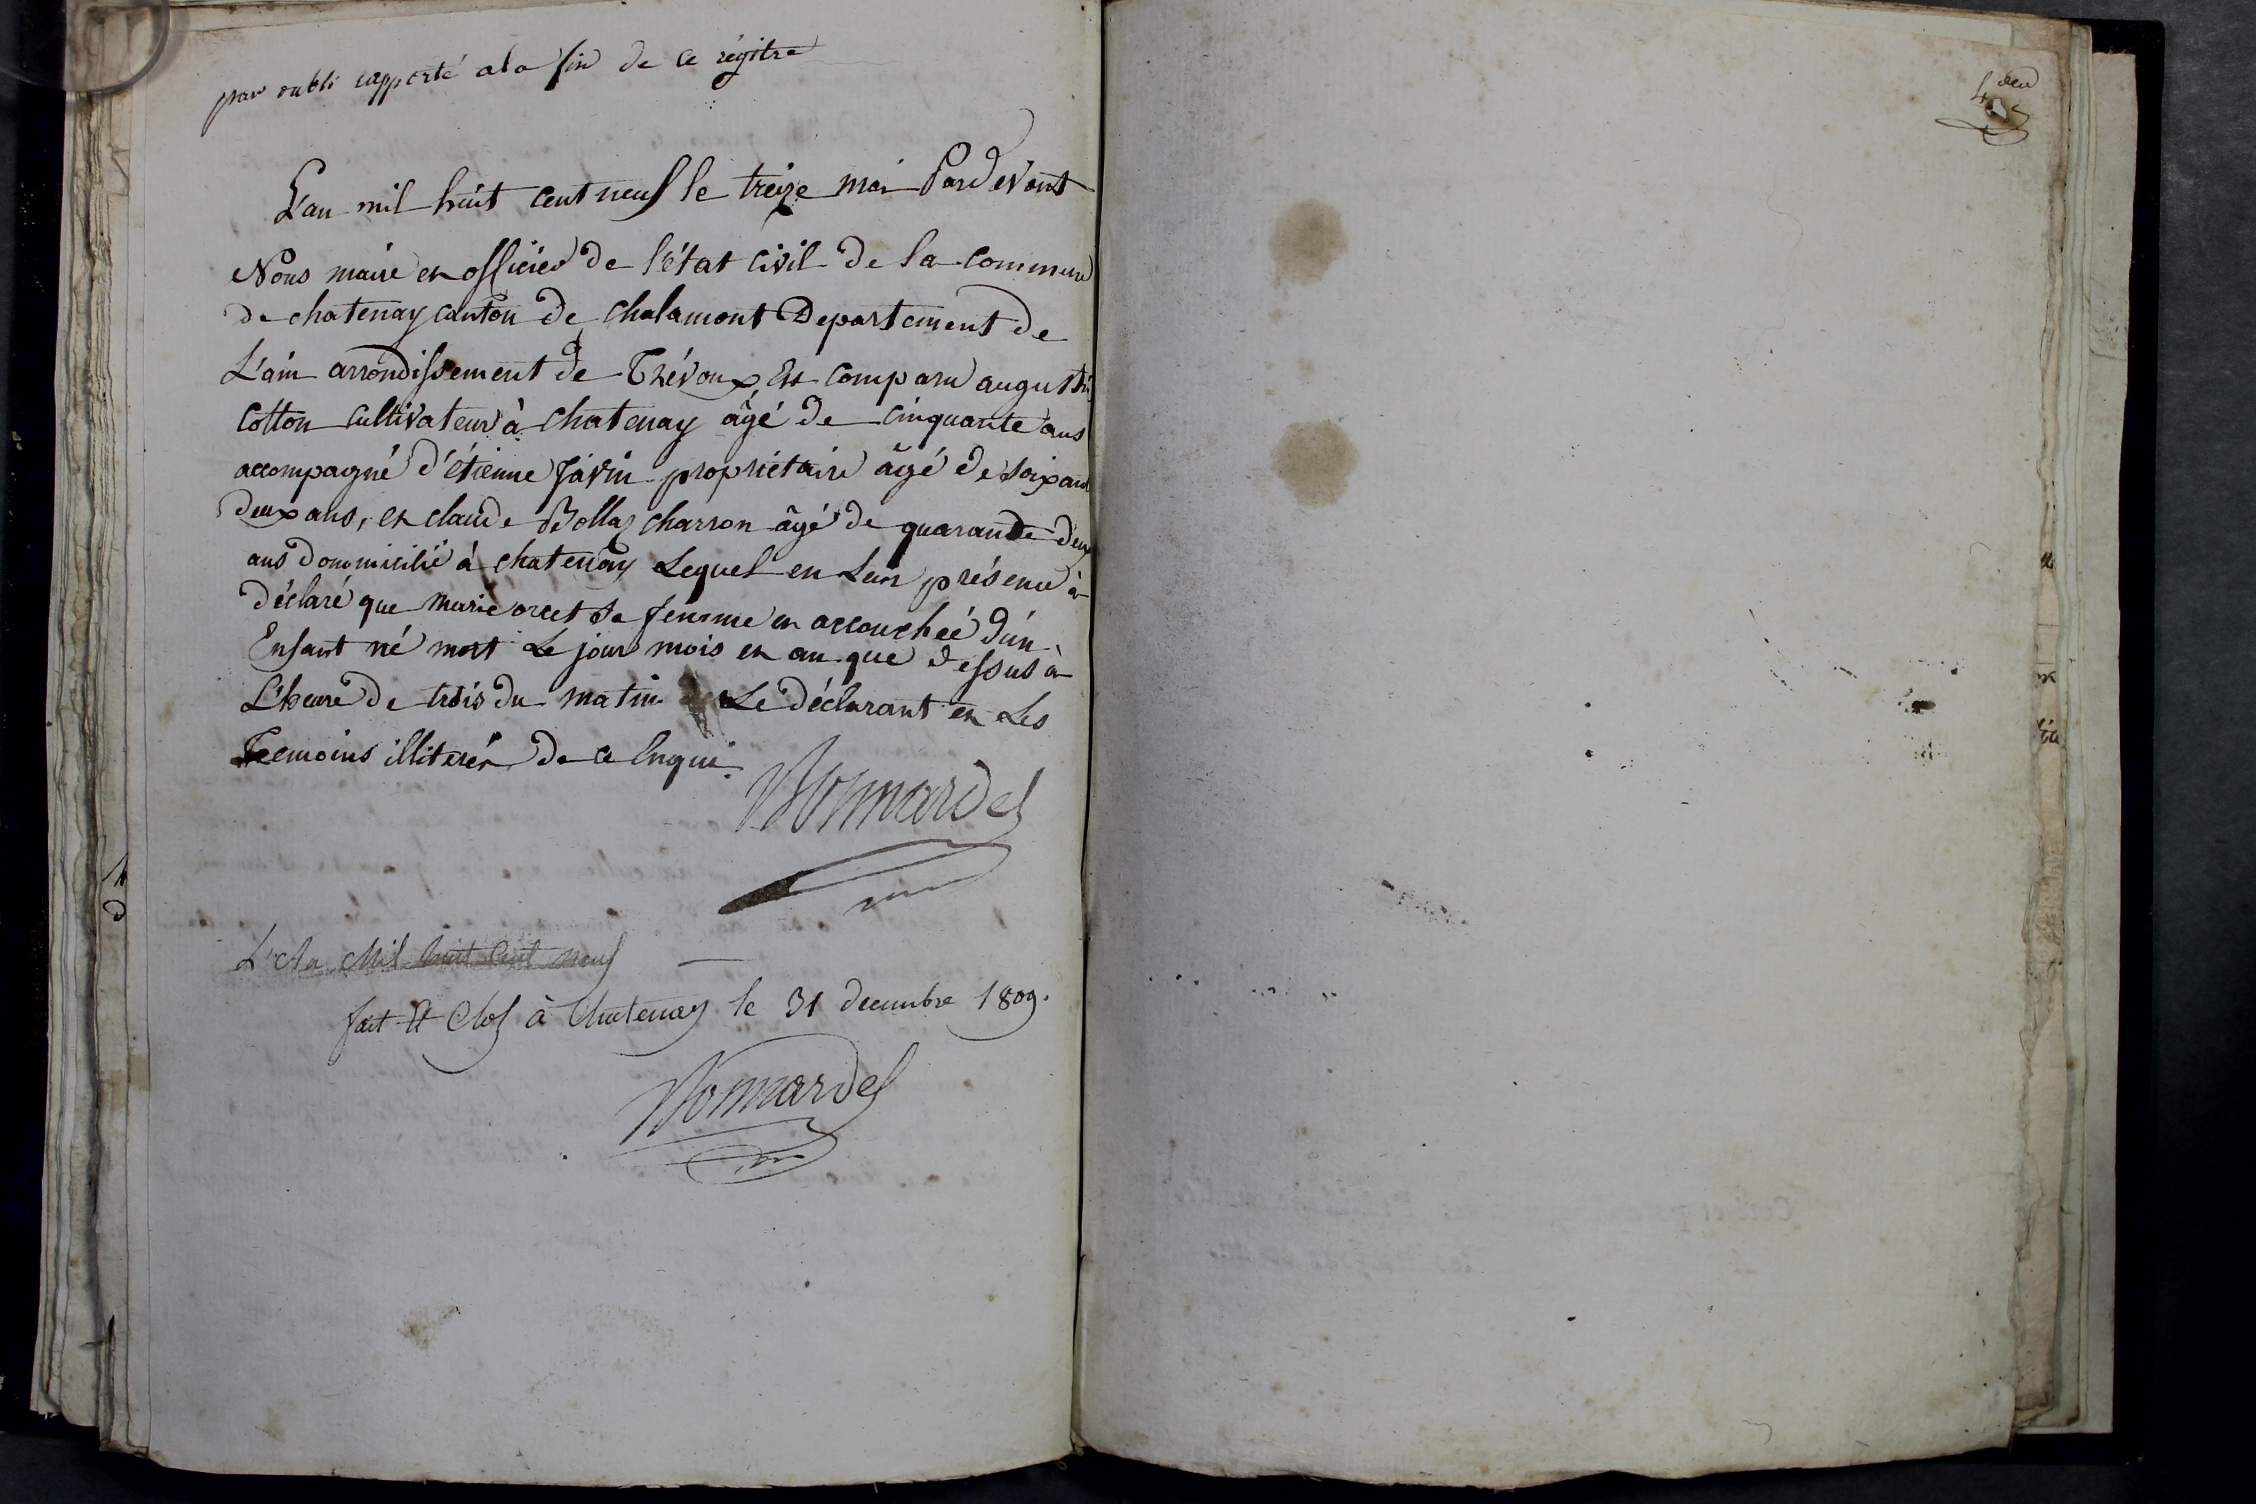 par oubli rapporté a la fin de ce régitre
L'an mil huit cent neuf le treize mai Pardevant
Nous maire et officier de l'état civil de la commune
de chatenay canton de chalamont Departement de
L'ain arrondissement de Trévoux, Est comparu augustin
Cotton cultivateur à chatenay âgé de cinquante ans
accompagné d'étienne favin propriétaire âgé de soixante
deux ans, et claude Bollaz charron âgé de quarande deux
ans domicilié à chatenay Lequel en Leur présence à
déclaré que marie orcet sa femme en accouchéé d'un
Enfant né mort Le jour mois et an que dessus à
L'heure de trois du matin Le déclarant et Les
Temoins illiterés de ce Enquis
Bonnardel
L'An Mil huit Cent neuf
fait Et Clos à Chatenay le 31 decembre 1809.
Bonnardel